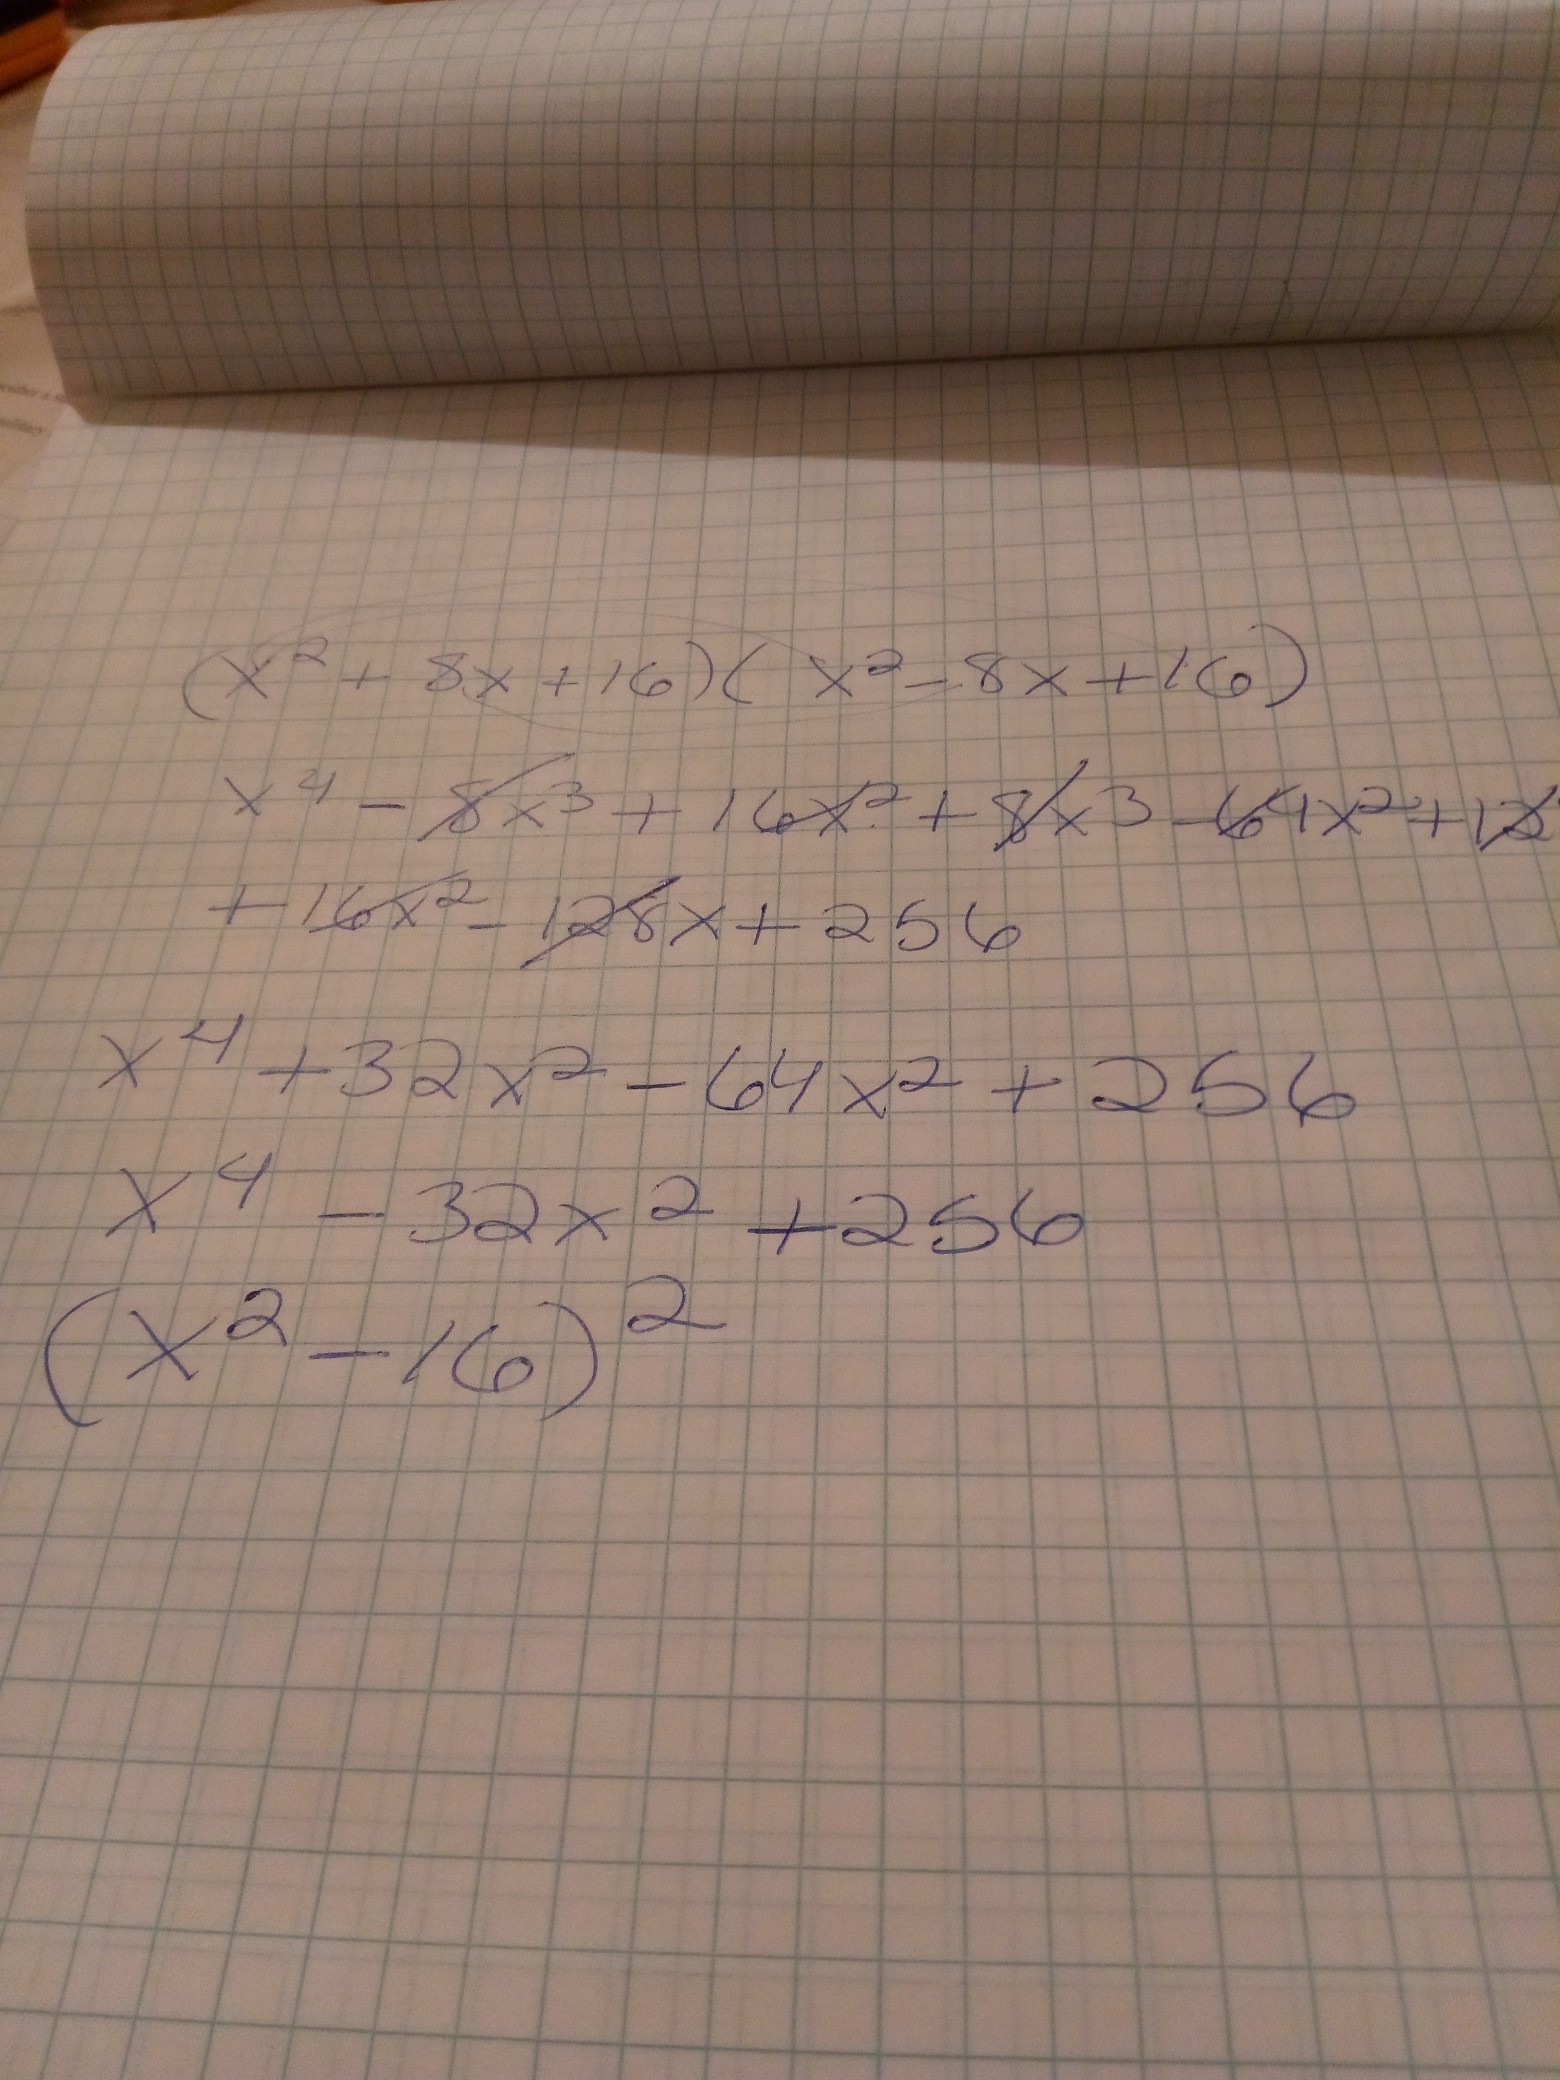 (x² + 8x + 16)(x² - 8x + 16)
x⁴ - 8x³ + 16x² + 8x³ - 64x² + 12
+ 16x² - 128x + 256
x⁴ + 32x² - 64x² + 256
x⁴ - 32x² + 256
(x² - 16)²